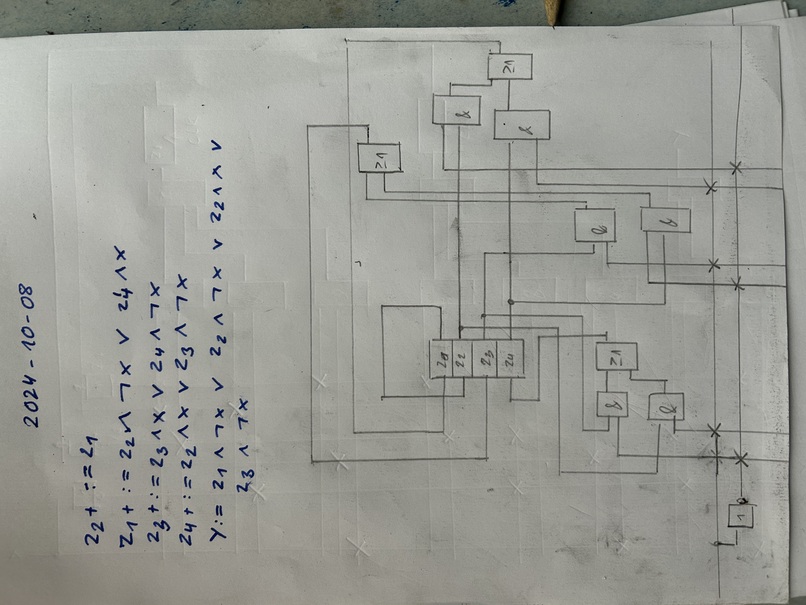 2024-10-08
Z2+ := Z1
Z1+ := Z2 ∧ ¬x ∨ Z4 ∧ x
Z3+ := Z3 ∧ x ∨ Z4 ∧ ¬x
Z4+ := Z2 ∧ x ∨ Z3 ∧ ¬x
Y := Z1 ∧ ¬x ∨ Z2 ∧ ¬x ∨ Z2 ∧ x ∨
Z3 ∧ ¬x
≥1
&
&
≥1
&
&
Z1
Z2
Z3
Z4
≥1
&
&
1